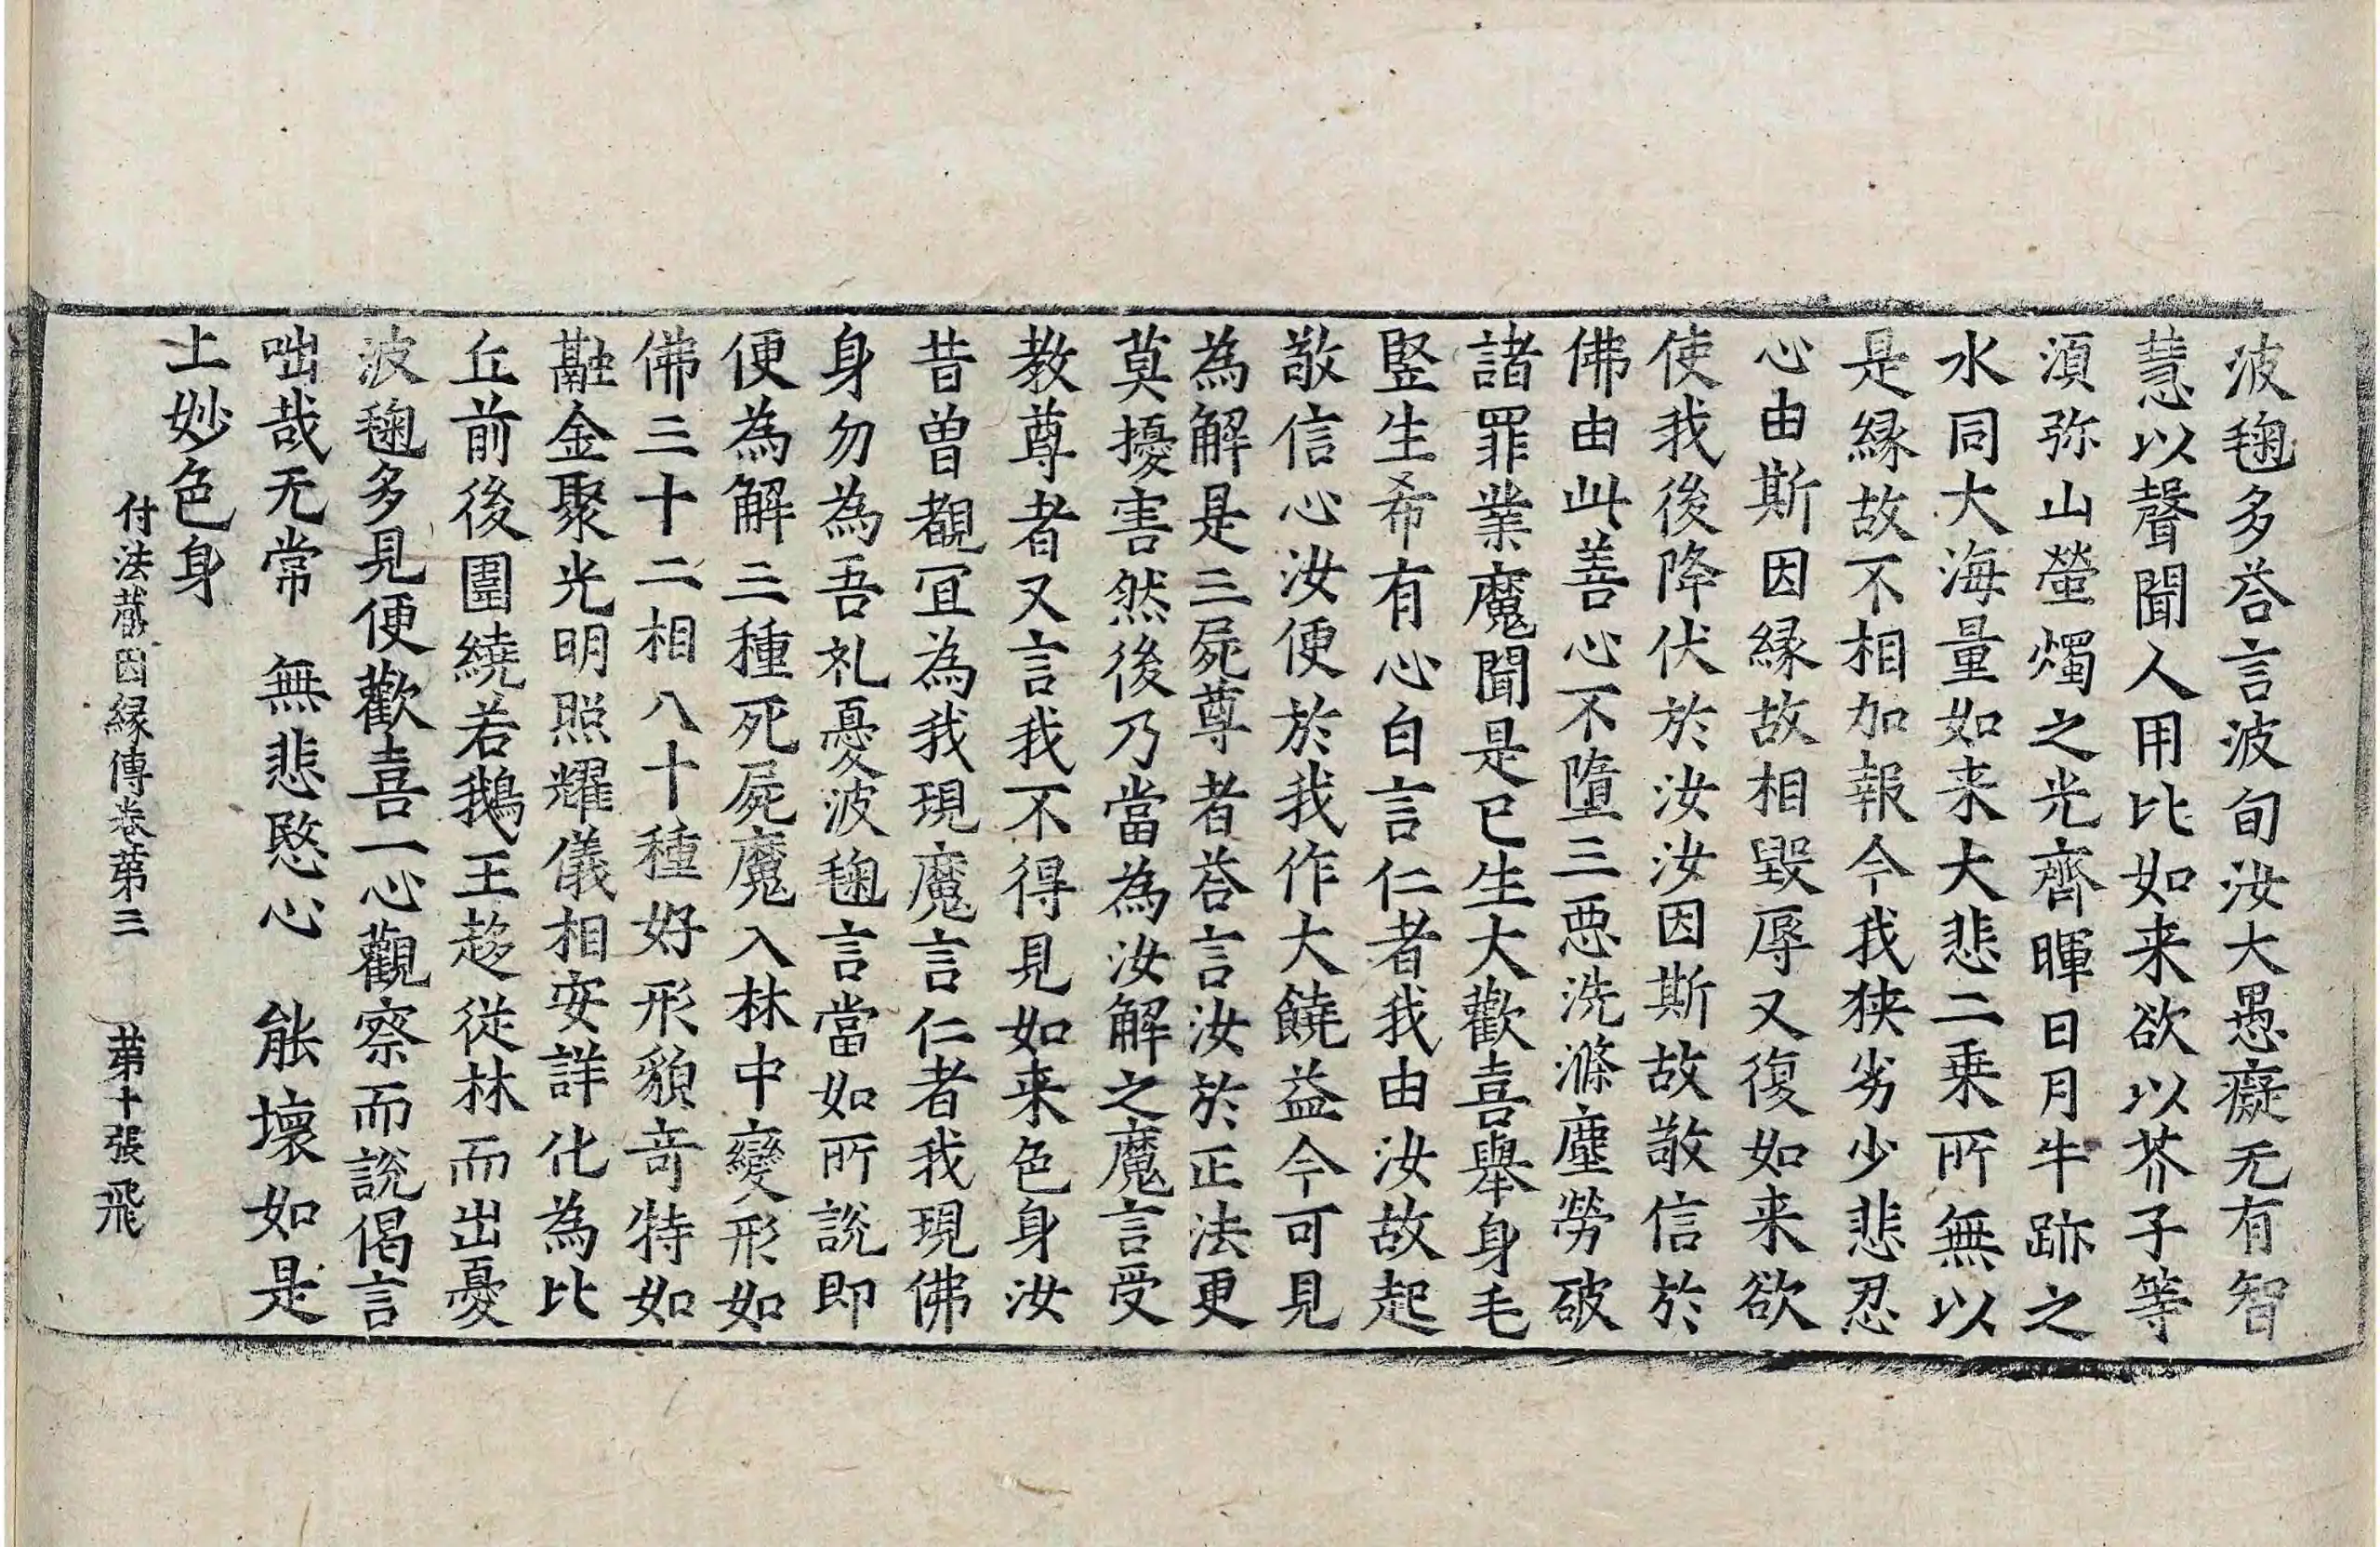 波毱多荅言波旬汝大愚癡无有智
慧以聲聞人用比如来欲以芥子等
湏弥山螢燭之光齊暉日月牛跡之
水同大海量如来大悲二乗所無以
是縁故不相加報今我狭劣少悲忍
心由斯因縁故相毀辱又復如来欲
使我後降伏於汝汝因斯故敬信於
佛由此善心不墮三惡洗滌塵勞破
諸罪業魔聞是已生大歡喜舉身毛
竪生希有心白言仁者我由汝故起
敬信心汝便於我作大饒益今可見
為解是三屍尊者荅言汝於正法更
莫擾害然後乃當為汝解之魔言受
教尊者又言我不得見如来色身汝
昔曽覩冝為我現魔言仁者我現佛
身勿為吾礼憂波毱言當如所說即
便為解三種死屍魔入林中變形如
佛三十二相八十種好形貌竒特如
融金聚光明照耀儀相安詳化為比
丘前後圍繞若鵝王趍從林而出憂
波毱多見便歡喜一心觀察而說偈言
咄哉无常　無悲愍心　能壞如是
上妙色身
付法藏因縁傳卷第三　第十張　飛